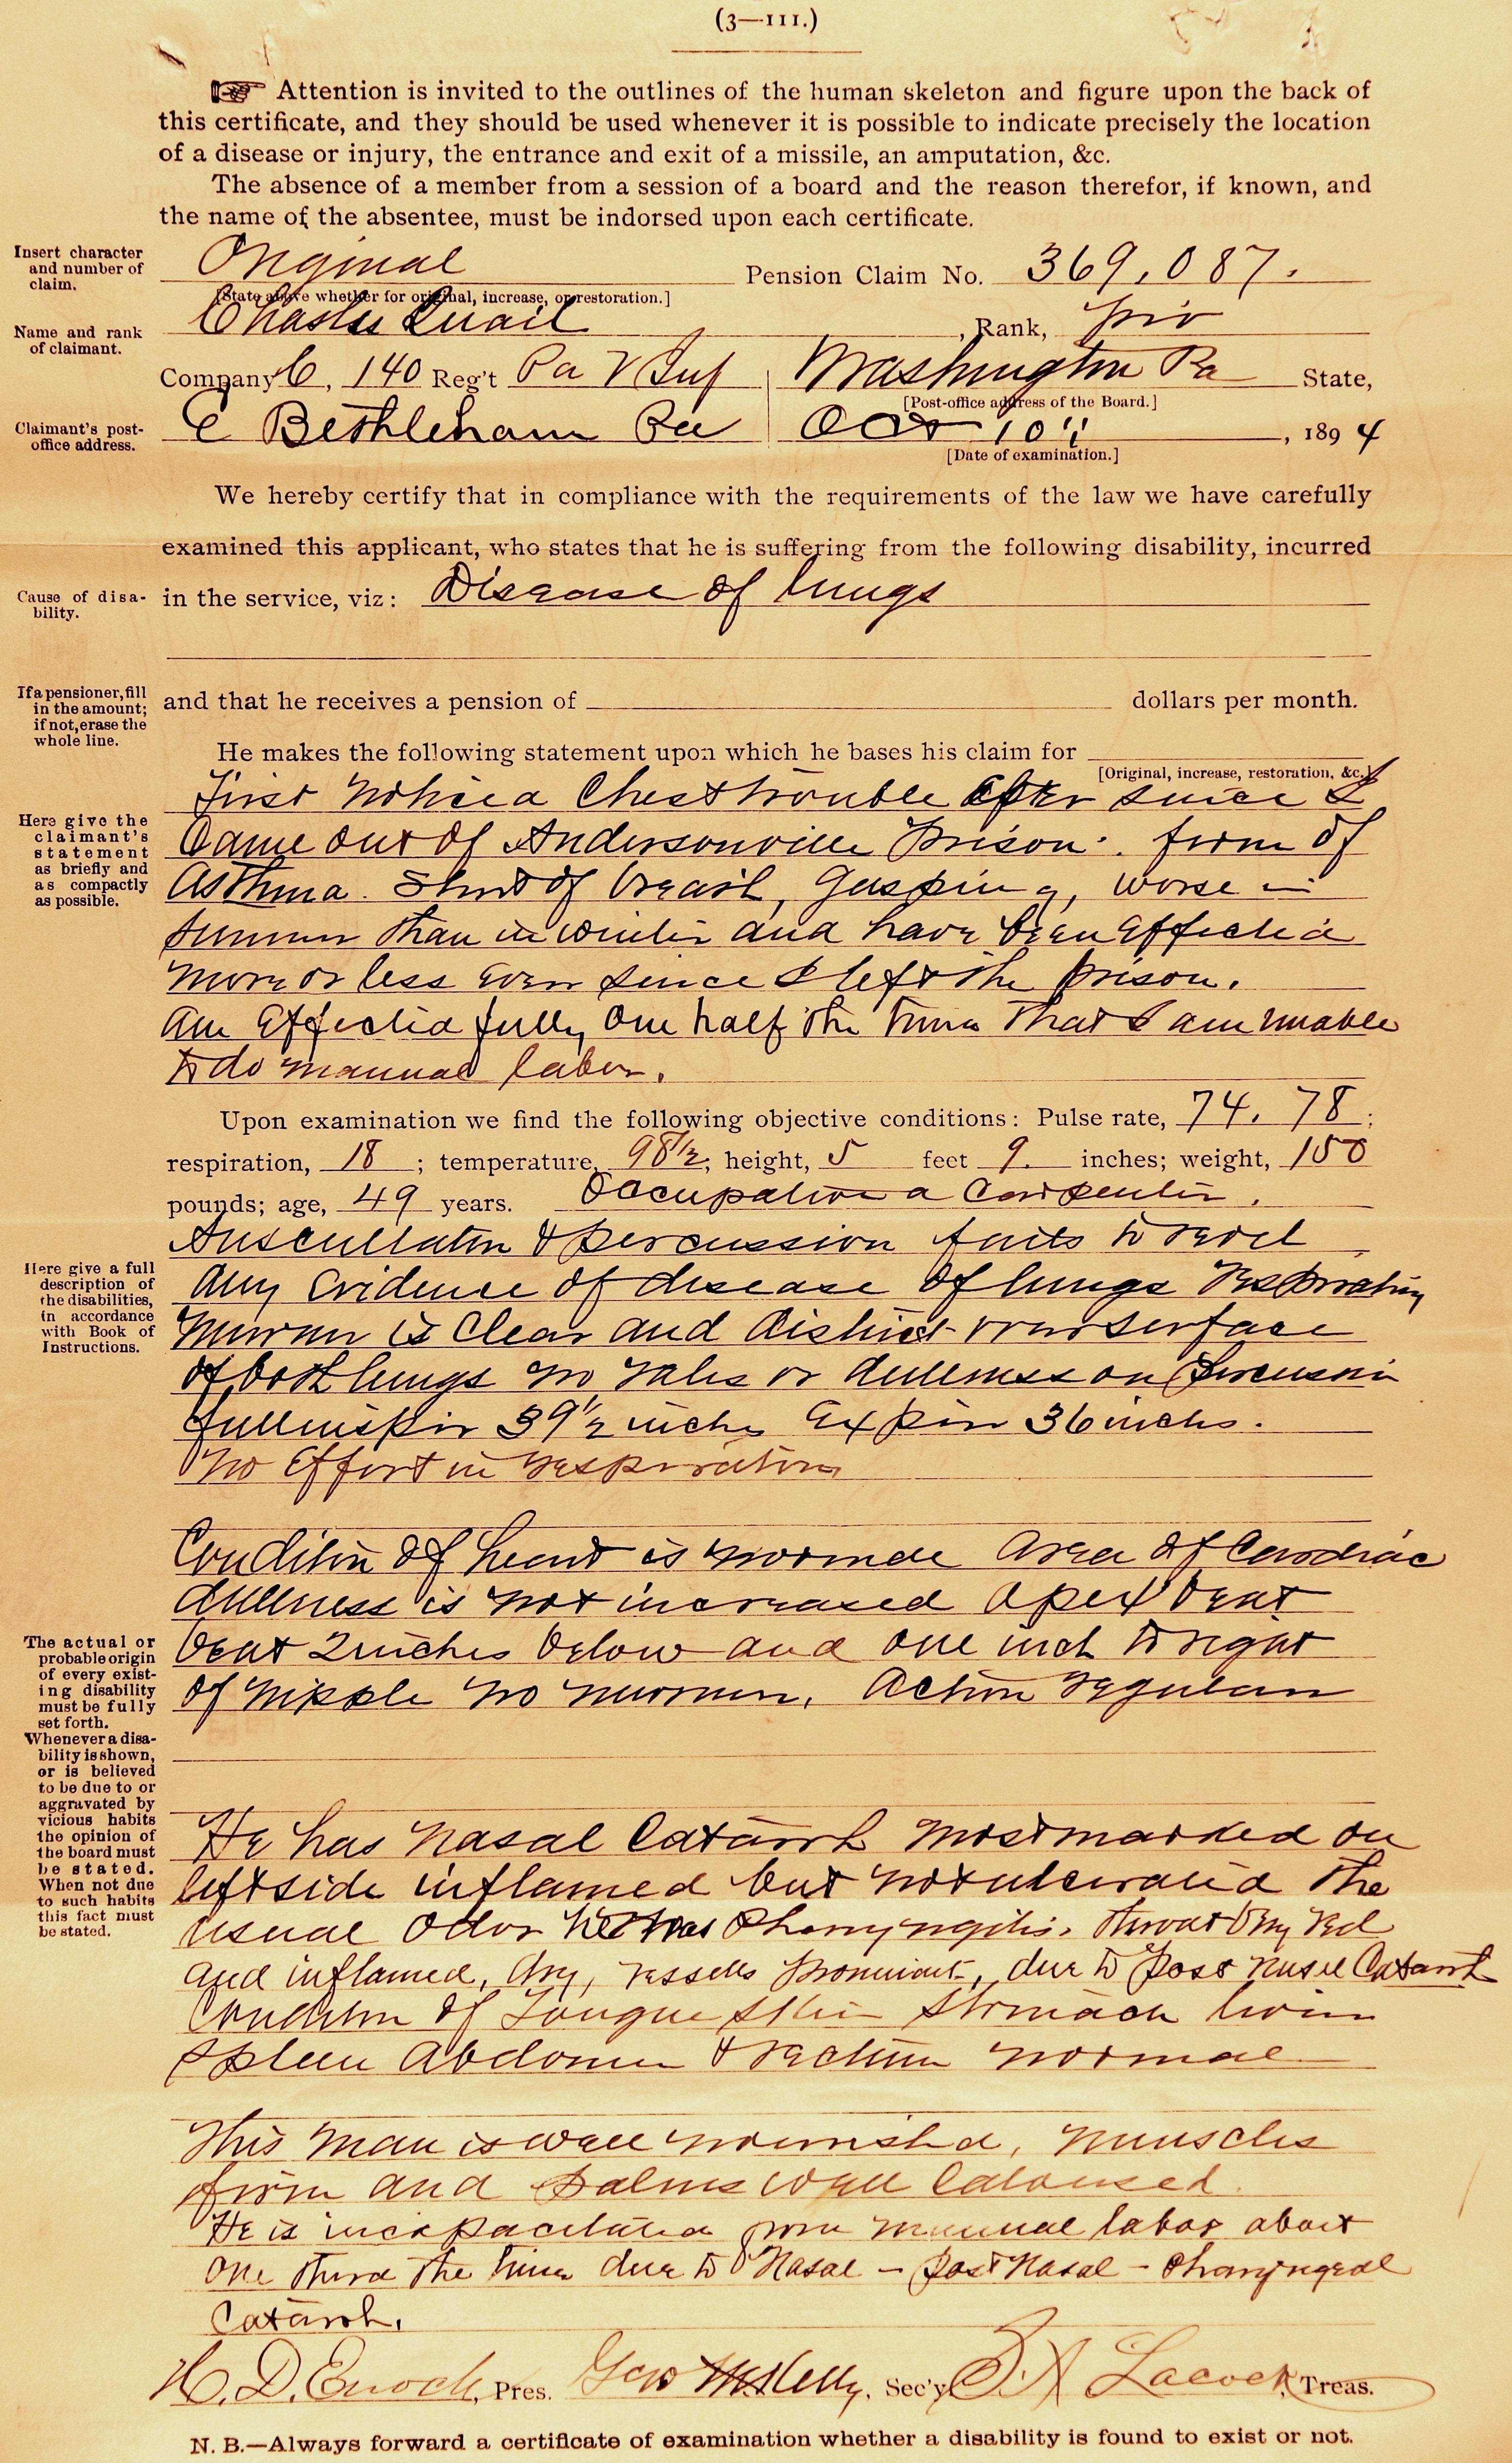 (3—111.)
Attention is invited to the outlines of the human skeleton and figure upon the back of
this certificate, and they should be used whenever it is possible to indicate precisely the location
of a disease or injury, the entrance and exit of a missile, an amputation, &c.
The absence of a member from a session of a board and the reason therefor, if known, and
the name of the absentee, must be indorsed upon each certificate.
Insert character
and number of
claim.
Original Pension Claim No. 369,087.
[State above whether for original, increase, or restoration.]
Name and rank
of claimant.
Charles Quail, Rank, Priv
Company C, 140 Reg't Pa V Inf Washington Pa State,
[Post-office address of the Board.]
Claimant's post-
office address.
E Bethleham Pa Oct 10", 1894
[Date of examination.]
We hereby certify that in compliance with the requirements of the law we have carefully
examined this applicant, who states that he is suffering from the following disability, incurred
Cause of disa-
bility.
in the service, viz: Disease of lungs
If a pensioner, fill
in the amount;
if not, erase the
whole line.
and that he receives a pension of dollars per month.
He makes the following statement upon which he bases his claim for
[Original, increase, restoration, &c.]
Here give the
claimant's
statement
as briefly and
as compactly
as possible.
First noticed Chest trouble after since I
Came out of Andersonville Prison. form of
Asthma. Short of breath, Gasping, worse in
summer than in winter and have been Effected
more or less ever since I left the prison.
am Effected fully one half the time that I am unable
to do manual labor.
Upon examination we find the following objective conditions: Pulse rate, 74. 78;
respiration, 18; temperature, 98½; height, 5 feet 9. inches; weight, 150
pounds; age, 49 years. Occupation a Carpenter.
Here give a full
description of
the disabilities,
in accordance
with Book of
Instructions.
Auscultation & percussion fails to revel
any Evidence of disease of lungs Respiratory
murmur is Clear and distinct over surface
of both lungs no rales or dullness on Percussion
full inspir 39½ inches Expir 36 inches.
No Effort in respiration
Condition of heart is normal Area of Cardiac
dullness is not increased Apex beat
beat 2 inches below and one inch to right
of nipple no murmur. Action regular
The actual or
probable origin
of every exist-
ing disability
must be fully
set forth.
Whenever a disa-
bility is shown,
or is believed
to be due to or
aggravated by
vicious habits
the opinion of
the board must
be stated.
When not due
to such habits
this fact must
be stated.
He has Nasal Catarrh most marked on
left side inflamed but not ulcerated the
usual odor He has Pharyngitis. throat dry red
and inflamed, dry, vessels prominent, due to Post nasal Catarrh
Condition of Tongue skin stomach liver
spleen Abdomen & rectum normal
This man is well nourished, muscles
firm and palms well Caloused.
He is incapacitated from manual labor about
one third the time due to Nasal - post Nasal - Pharyngeal
Catarrh.
H. D. Enoch, Pres. Geo McKelly, Sec'y S. A Lacock, Treas.
N. B.—Always forward a certificate of examination whether a disability is found to exist or not.